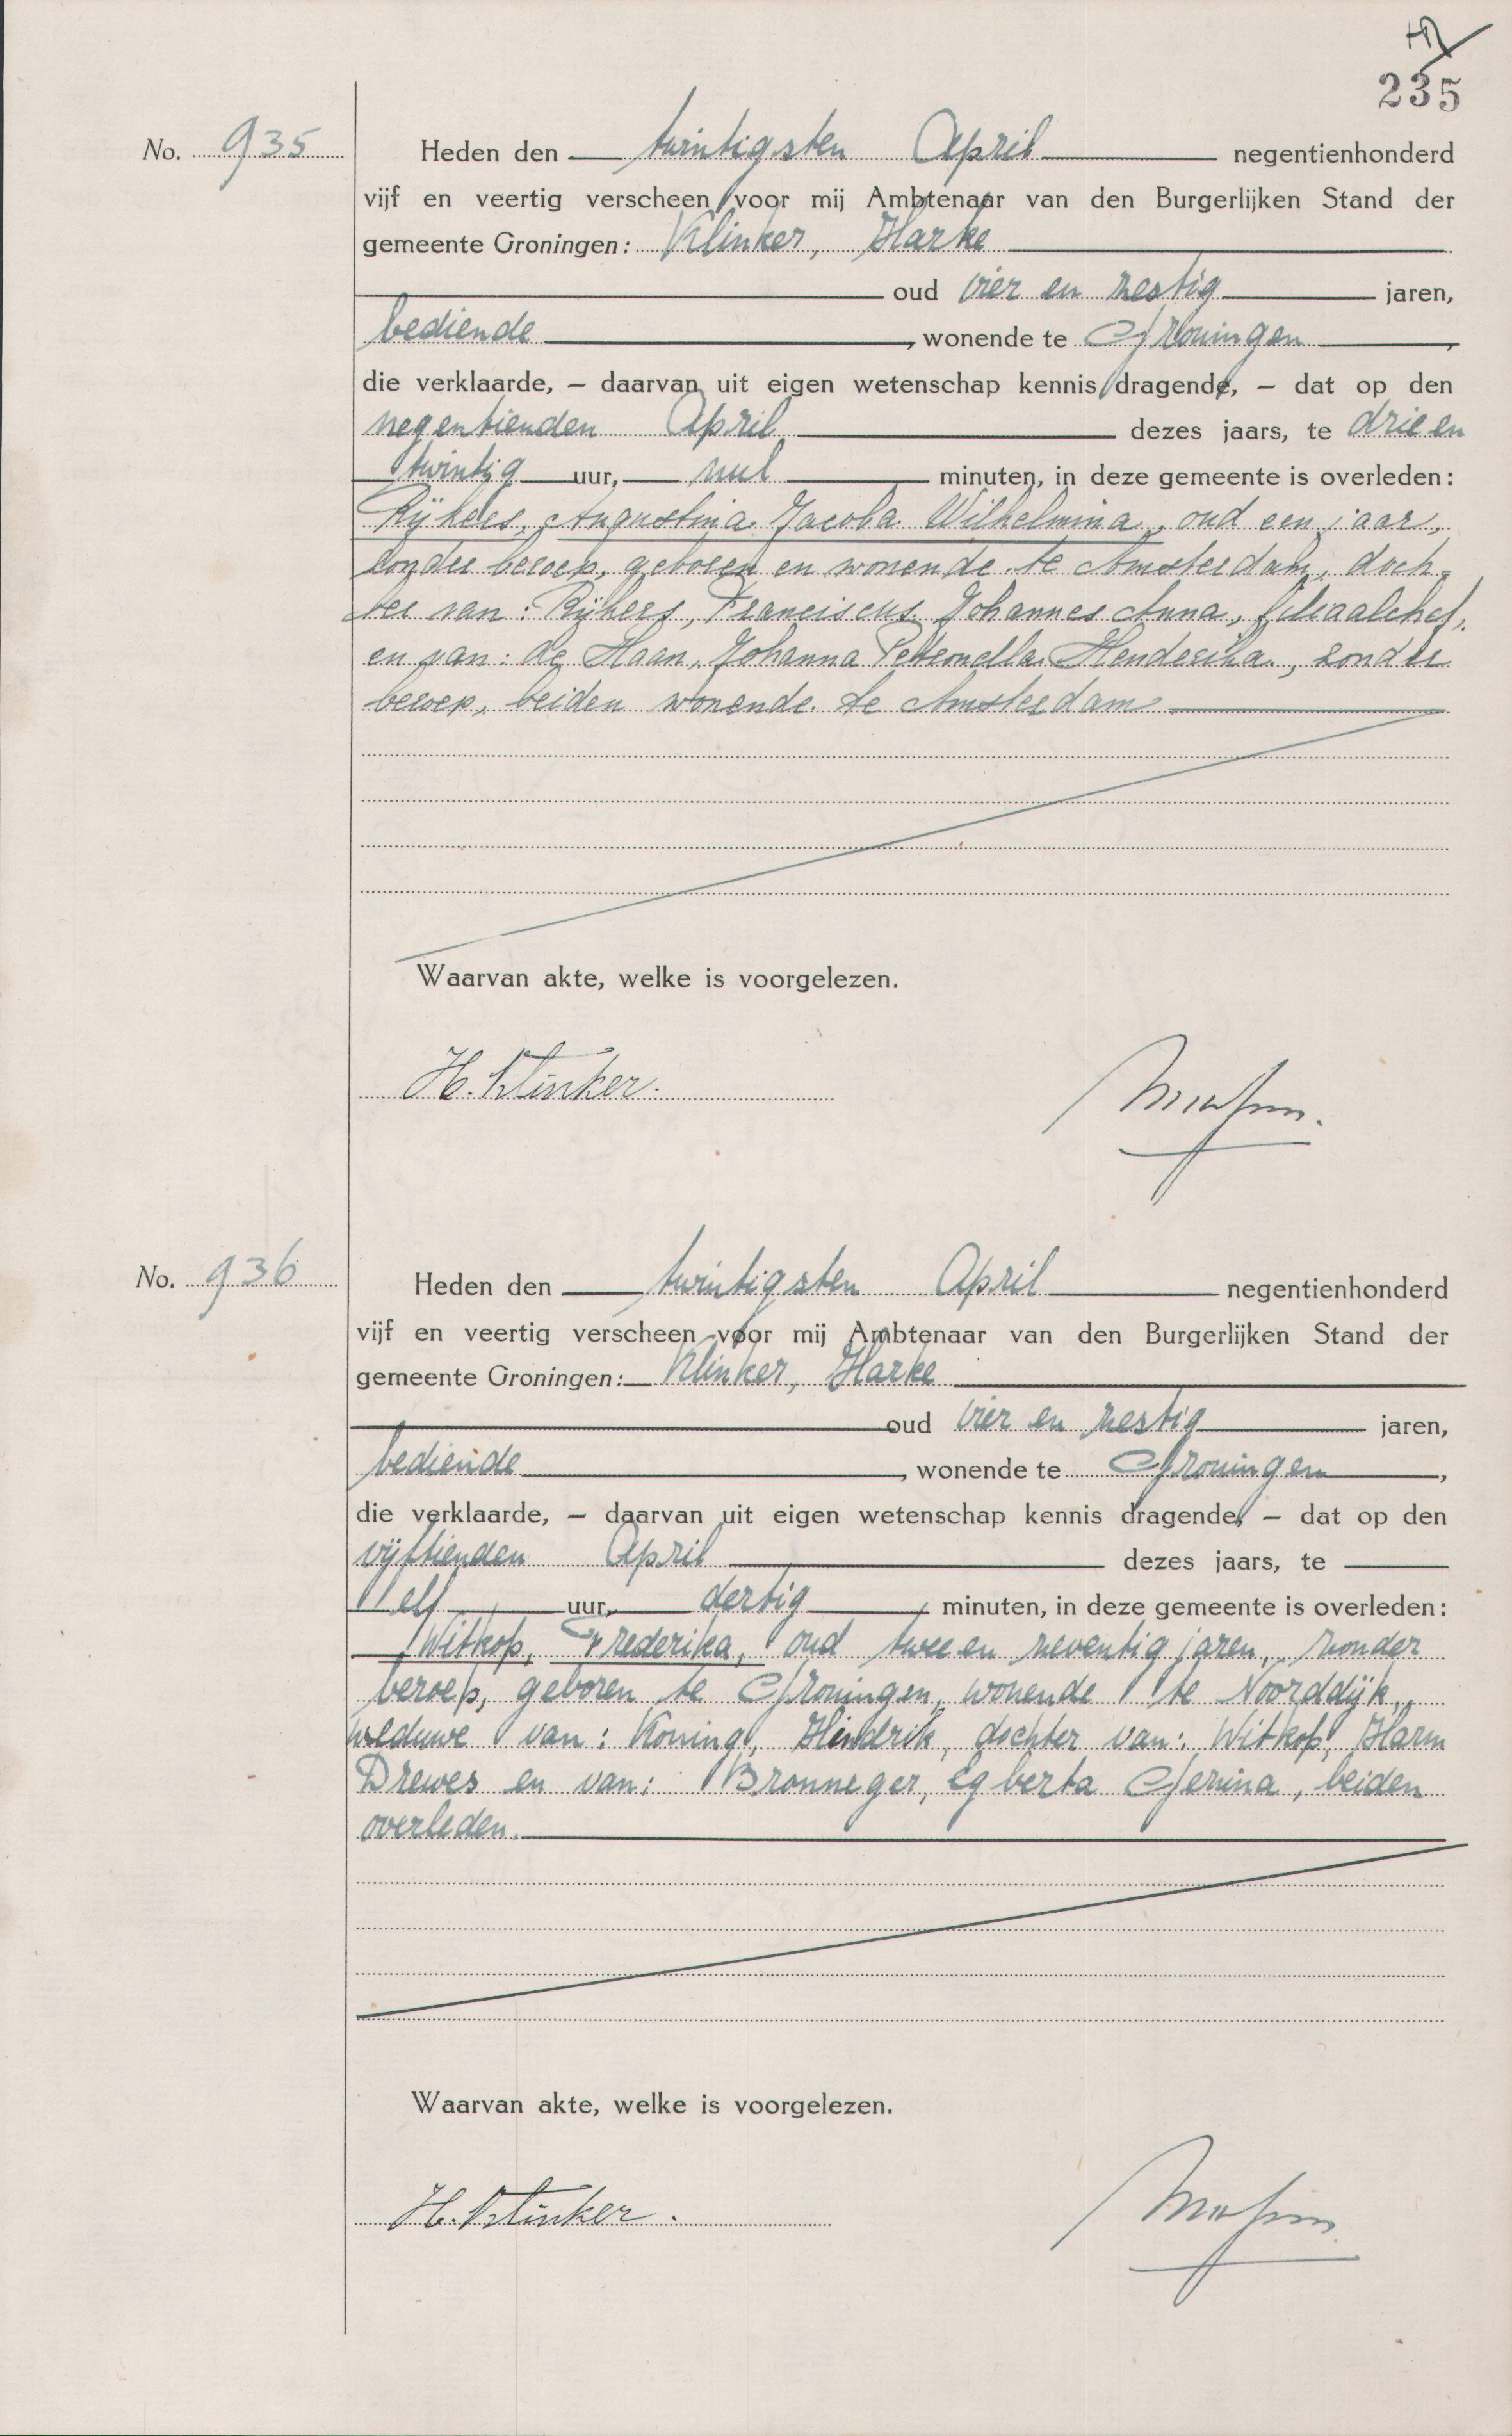 235
No. 935
Heden den twintigsten April negentienhonderd
vijf en veertig verscheen voor mij Ambtenaar van den Burgerlijken Stand der
gemeente Groningen: Klinker, Harke
oud vier en zestig jaren,
bediende, wonende te Groningen,
die verklaarde, – daarvan uit eigen wetenschap kennis dragende, – dat op den
negentienden April dezes jaars, te drie en
twintig uur, nul minuten, in deze gemeente is overleden:
Rijkers, Augustina Jacoba Wilhelmina, oud een jaar,
zonder beroep, geboren en wonende te Amsterdam, doch-
ter van: Rijkers, Franciscus Johannes Anna, filiaalchef,
en van: de Haan, Johanna Petronella Henderika, zonder
beroep, beiden wonende te Amsterdam
Waarvan akte, welke is voorgelezen.
H. Klinker.
No. 936
Heden den twintigsten April negentienhonderd
vijf en veertig verscheen voor mij Ambtenaar van den Burgerlijken Stand der
gemeente Groningen: Klinker, Harke
oud vier en zestig jaren,
bediende, wonende te Groningen,
die verklaarde, – daarvan uit eigen wetenschap kennis dragende, – dat op den
vijftienden April dezes jaars, te
elf uur, dertig minuten, in deze gemeente is overleden:
Witkop, Frederika, oud twee en zeventig jaren, zonder
beroep, geboren te Groningen, wonende te Noorddijk,
weduwe van: Koning, Hindrik, dochter van: Witkop, Harm
Drewes en van: Bronneger, Egberta Gerina, beiden
overleden.
Waarvan akte, welke is voorgelezen.
H. Klinker.